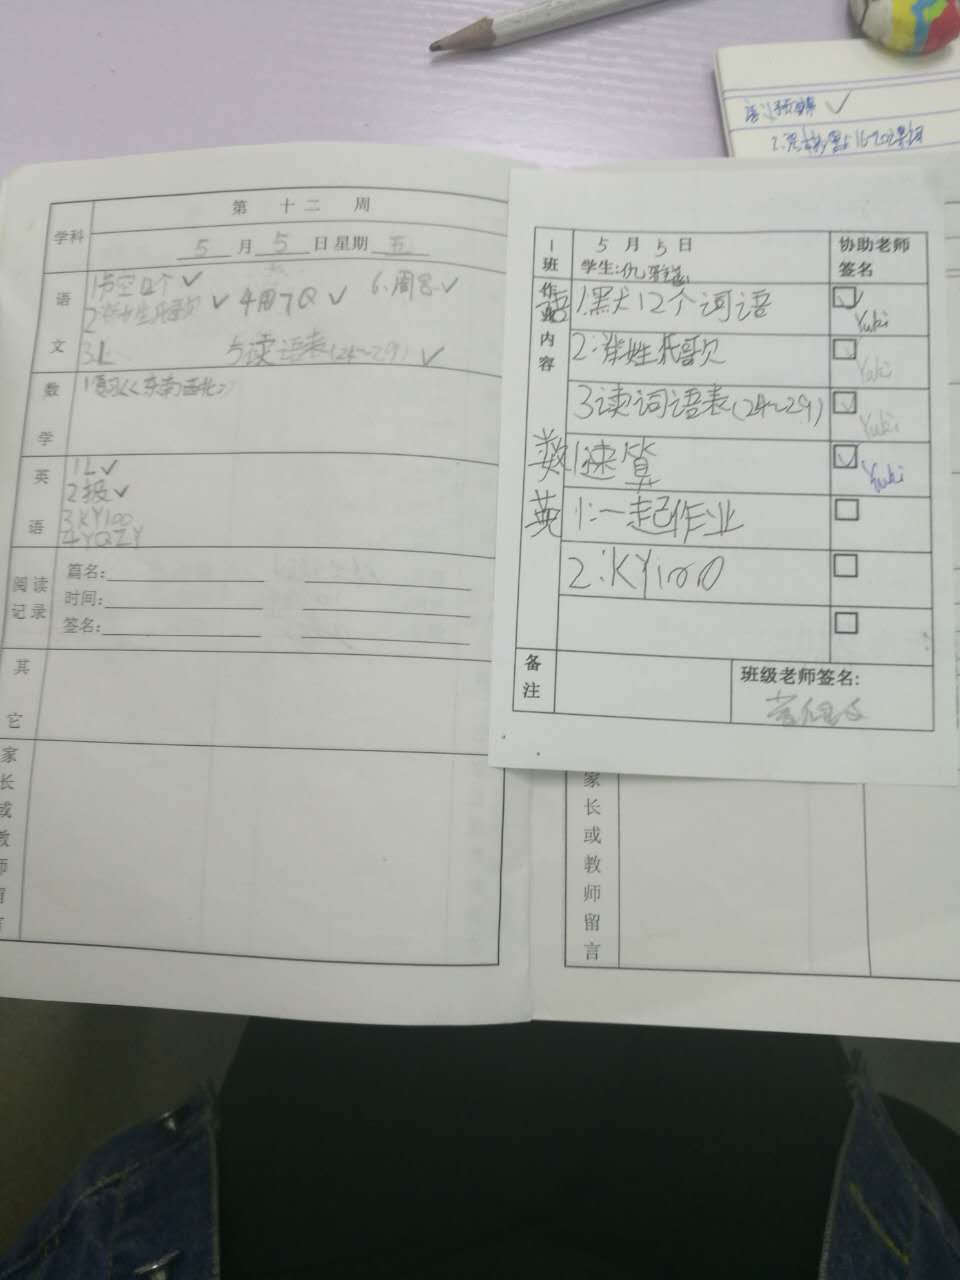 第 十二 周
学科
5 月 5 日 星期 五
语文
1书空12个 ✓
2背姓氏歌 ✓
3.L
4周7Q ✓
5读语表(24~29) ✓
6.周 ✓
数学
1复习《东南西北》
英语
1L ✓
2报 ✓
3KY100
4YQZY
阅读记录
篇名:
时间:
签名:
其它
家长或教师留言
1班
5 月 5 日
学生:仇
协助老师签名
作业内容
语
1.默12个词语
Yuki
2.背姓氏歌
Yuki
3读词语表(24~29)
Yuki
数
1速算
Yuki
英
1.一起作业
2.KY100
备注
班级老师签名:
家长或教师留言